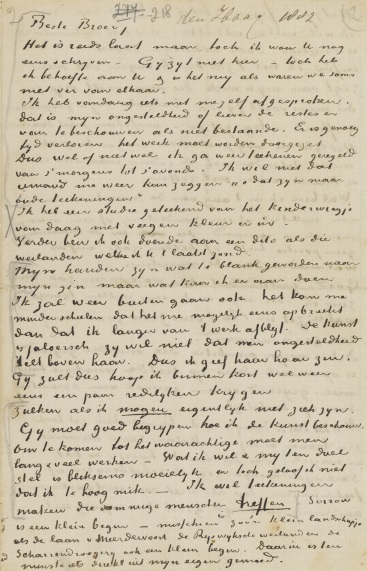 218 den Haag 1882 (2
Beste Broer,
Het is reeds laat maar toch ik wou u nog
eens schryven – Gy zyt niet hier – doch heb
ik behoefte aan U & is het my als waren we soms
niet ver van elkaar.
Ik heb vandaag iets met mezelf afgesproken,
dat is, myn ongesteldheid of liever de restes er
van te beschouwen als niet bestaande. Er is genoeg
tyd verloren, het werk moet worden doorgezet.
Dus wel of niet wel ik ga weer teekenen geregeld
van s'morgens tot s'avonds. Ik wil niet dat
iemand me weer kan zeggen „o dat zyn maar
oude teekeningen"
Ik heb een studie geteekend van het kinderwiegje
vandaag met vegen kleur er in.
Verder ben ik ook doende aan een dito als die
weilanden welke ik U laatst zond.
Myn handen zyn wat te blank geworden naar
myn zin maar wat kan ik er aan doen
Ik zal weer buiten gaan ook het kan me
minder schelen dat het me mogelyk eens opbreekt
dan dat ik langer van 't werk afblyf. De kunst
is jaloersch zy wil niet dat men ongesteldheid
kiest boven haar. Dus ik geef haar haar zin.
Gy zult dus hoop ik binnen kort wel weer
eens een paar redelyken krygen
Zulken als ik mogen eigentlyk niet ziek zyn.
Gy moet goed begrypen hoe ik de kunst beschouw.
Om te komen tot het waarachtige moet men
lang & veel werken – Wat ik wil & my ten doel
stel is bliksems moeielyk en toch geloof ik niet
dat ik te hoog mik. – Ik wil teekeningen
maken die sommige menschen treffen Sorrow
is een klein begin – misschien zoo'n klein landschapje
als de laan v Meerdervoort de Ryswyksche weilanden de
Scharrendroogery ook een klein begin. Daarin is ten
minste iets direkt uit myn eigen gemoed.